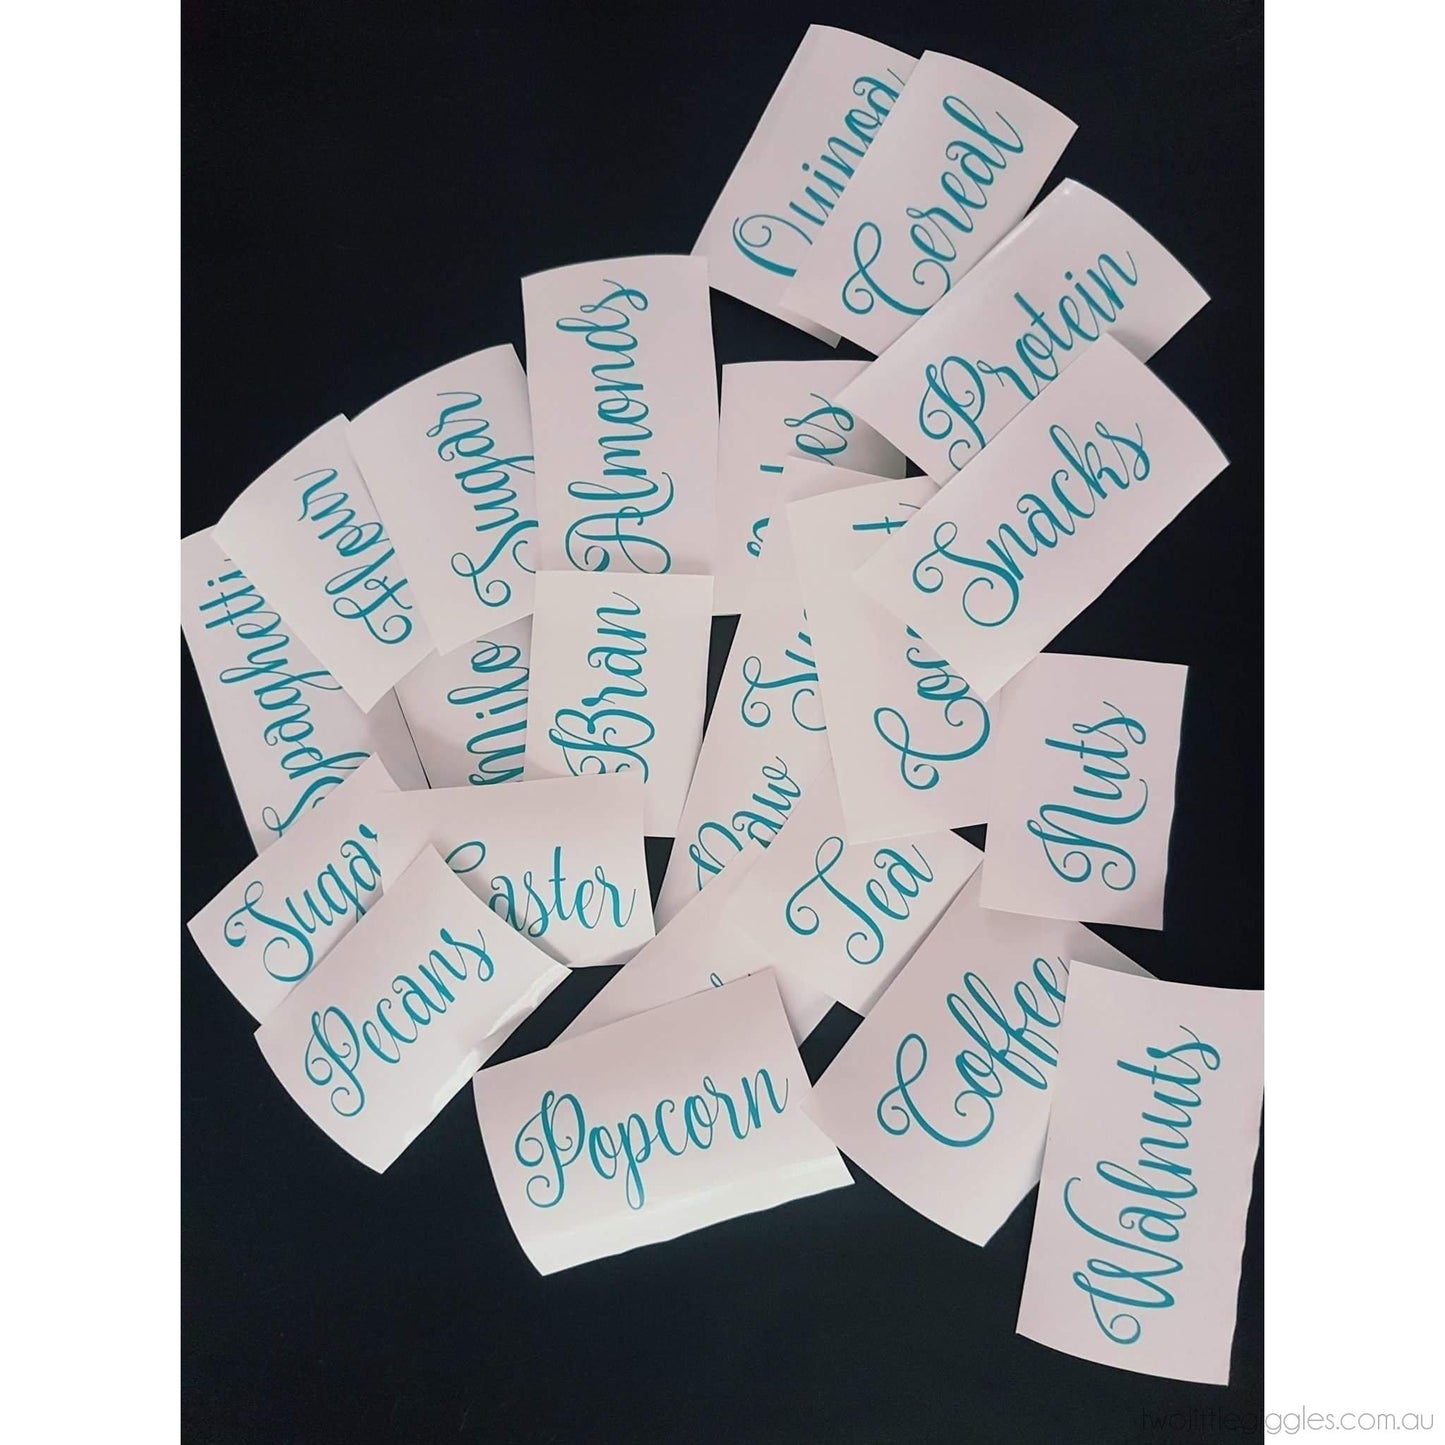 Quinoa
Cereal
Protein
Snacks
Almonds
Sugar
Flour
Spaghetti
Bran
Nuts
Raw
Tea
Sugar
Caster
Pecans
Coffee
Popcorn
Walnuts
twolittlegiggles.com.au